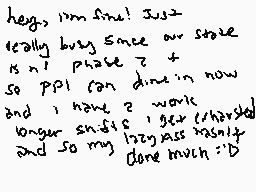 hey, im fine! Just
really busy since our state
is n! phase 2 +
so ppl can dine in now
and i have 2 work
longer shifts i get exhausted
and so my lazy ass hasnt
done much :'D